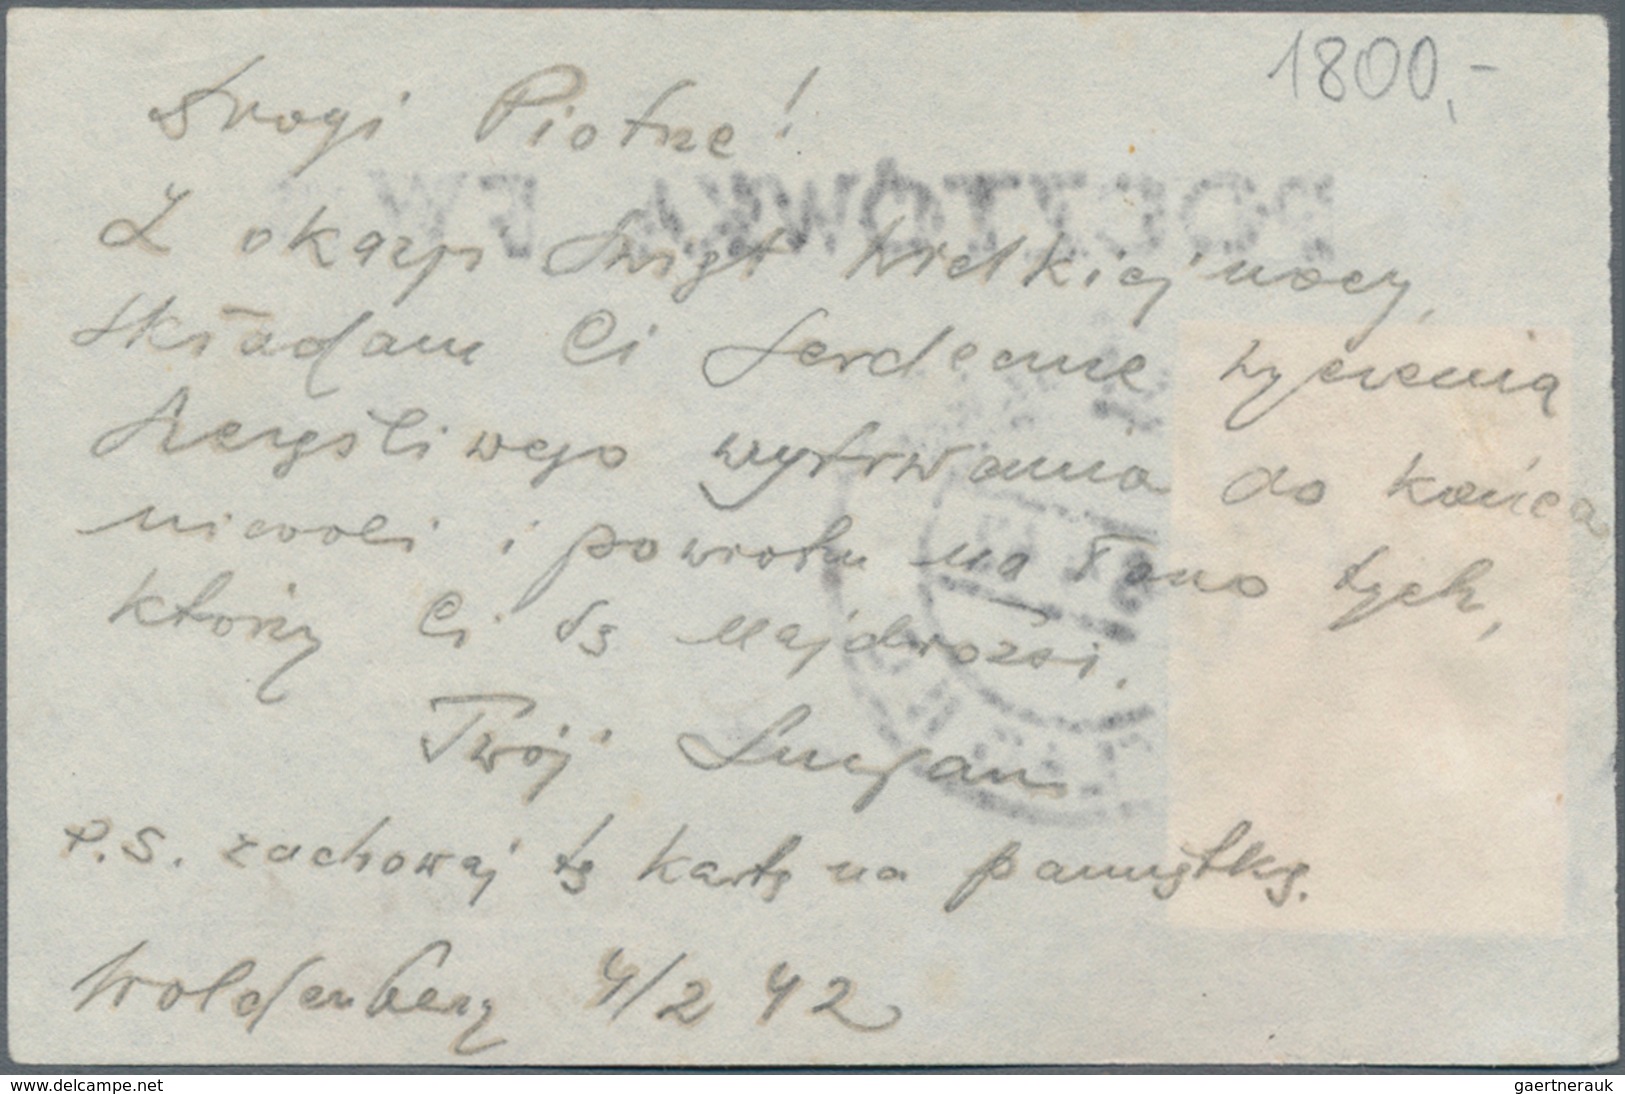 1800,-
Drogi Piotrze!
Z okazji Świąt Wielkiejnocy,
składam Ci serdeczne życzenia
szczęśliwego wytrwania do końca
niewoli i powrotu na łono tych,
którzy Ci są najdrożsi.
Twój Lucjan
P.S. zachowaj tę kartę na pamiątkę.
Woldenberg 4/2 42
www.delcampe.net
gaertnerauk